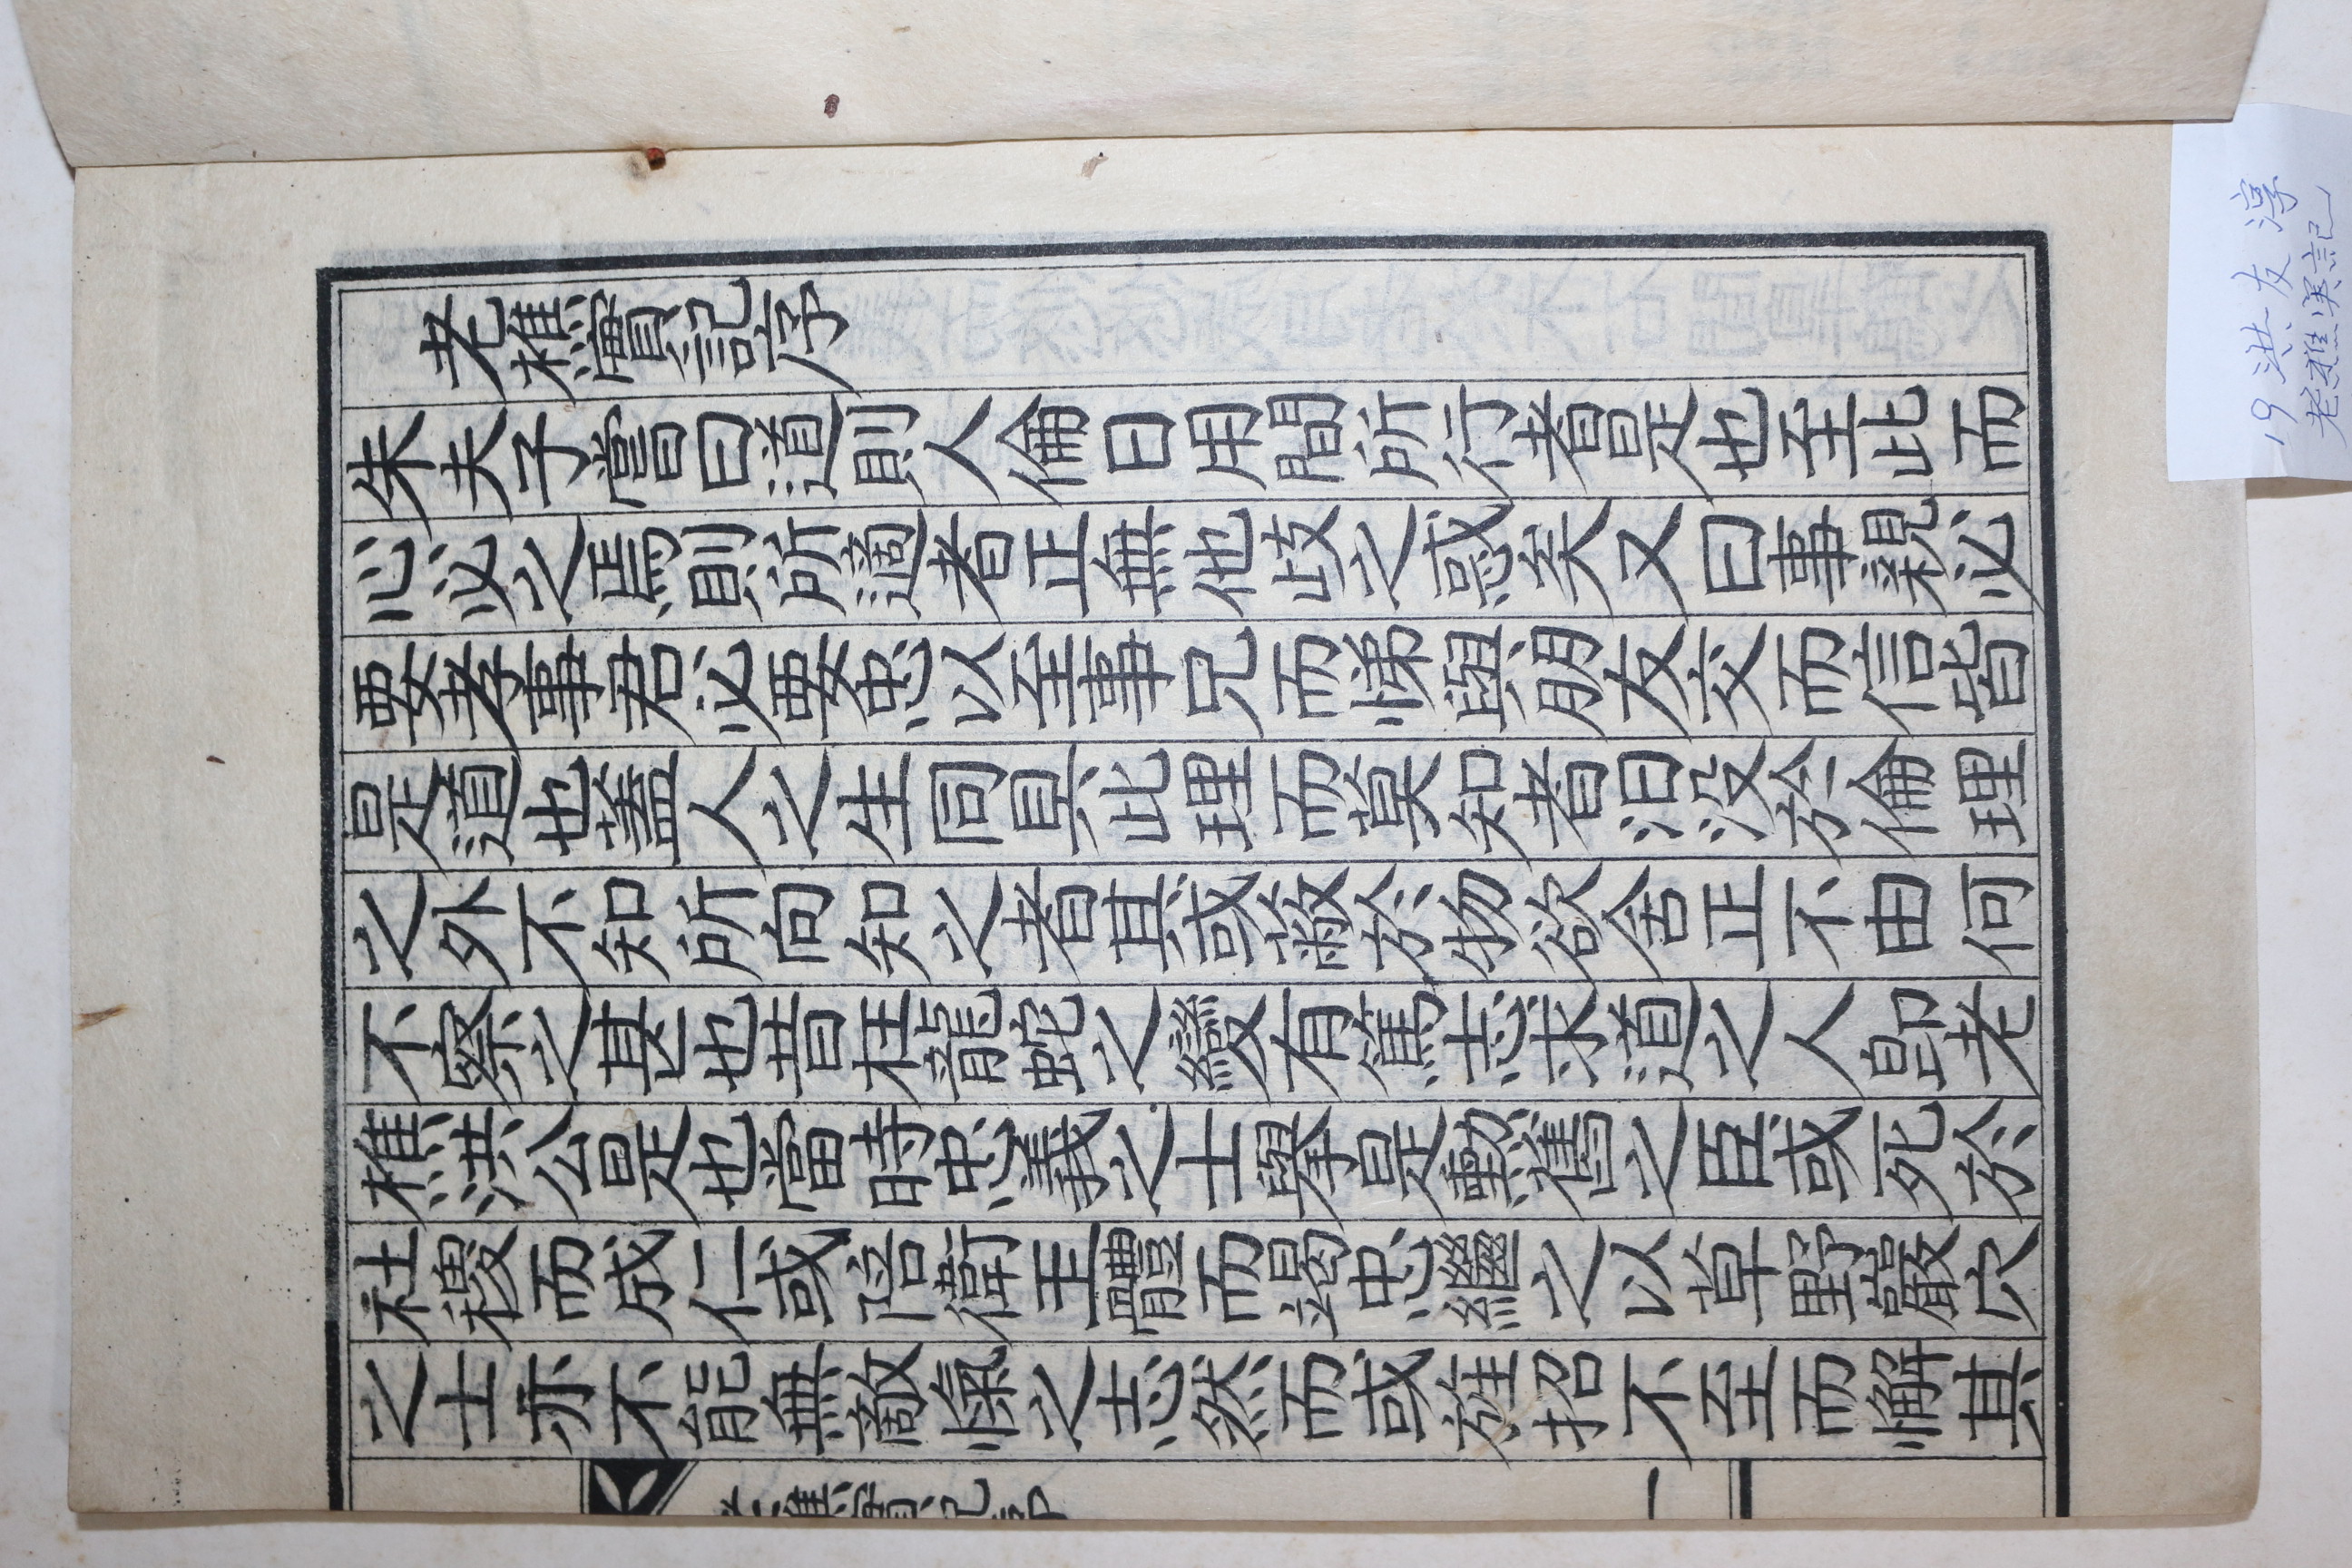 老樵實記序
朱夫子嘗曰道則人倫日用間所行者是也至此而
心必之焉則所適者正無他歧之惑矣又曰事親必
要孝事君必要忠以至事兄而悌與朋友交而信皆
是道也蓋人之生同具此理而莫知者汨没於倫理
之外不知所向知之者其或蔽於物欲舍正不由何
不察之甚也昔在龍蛇之變有篤志求道之人卽老
樵洪公是也當時忠義之士擧是勳舊之臣或死於
社稷而成仁或陪衛玉體而竭忠繼之以草野巖穴
之士亦不能無敵愾之志然而或旌招不至而懈其
老樵實記序
一
19 洪友淳
老樵実記